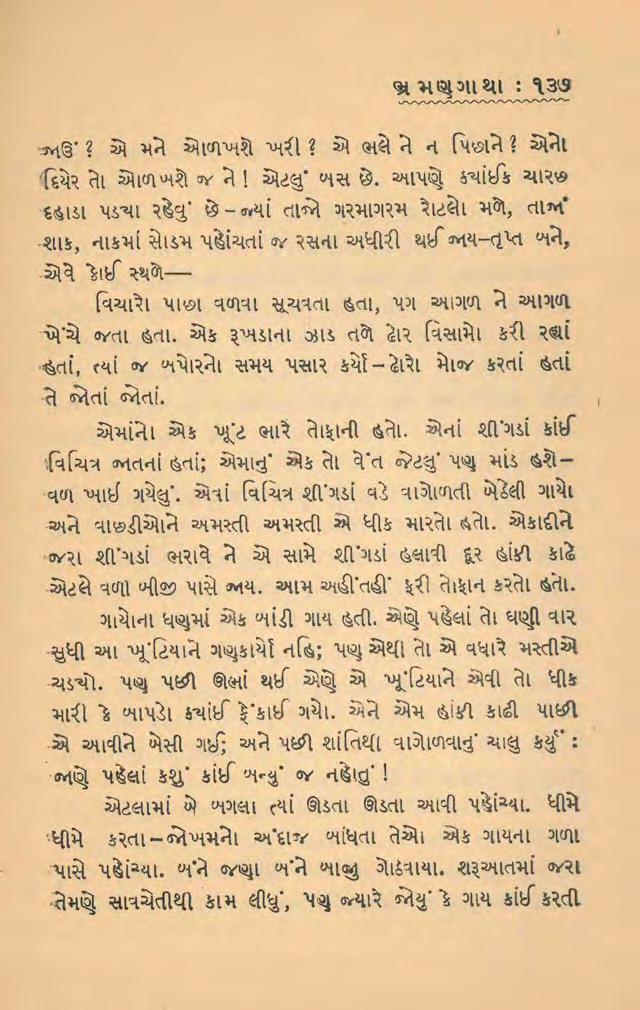 ભ્રમણગાથા : ૧૩૭
જાઉં? એ મને ઓળખશે ખરી? એ ભલે ને ન પિછાને? એનો
દિયેર તો ઓળખશે જ ને! એટલું બસ છે. આપણે ક્યાંઈક ચારછ
દહાડા પડ્યા રહેવું છે–જ્યાં તાજો ગરમાગરમ રોટલો મળે, તાજાં
શાક, નાકમાં સોડમ પહોંચતાં જ રસના અધીરી થઈ જાય–તૃપ્ત બને,
એવે કોઈ સ્થળે—
વિચારો પાછા વળવા સૂચવતા હતા, પગ આગળ ને આગળ
ખેંચે જતા હતા. એક રૂખડાના ઝાડ તળે ઢોર વિસામો કરી રહ્યાં
હતાં, ત્યાં જ બપોરનો સમય પસાર કર્યો–ઢોરો મોજ કરતાં હતાં
તે જોતાં જોતાં.
એમાંનો એક ખૂંટ ભારે તોફાની હતો. એનાં શીંગડાં કાંઈ
વિચિત્ર જાતનાં હતાં; એમાનું એક તો વેંત જેટલું પણ માંડ હશે–
વળ ખાઈ ગયેલું. એવાં વિચિત્ર શીંગડાં વડે વાગોળતી બેઠેલી ગાયો
અને વાછડીઓને અમસ્તી અમસ્તી એ ધીક મારતો હતો. એકાદીને
જરા શીંગડાં ભરાવે ને એ સામે શીંગડાં હલાવી દૂર હાંકી કાઢે
એટલે વળી બીજી પાસે જાય. આમ અહીંતહીં ફરી તોફાન કરતો હતો.
ગાયોના ધણમાં એક બાંડી ગાય હતી. એણે પહેલાં તો ઘણી વાર
સુધી આ ખૂંટિયાને ગણકાર્યો નહિ; પણ એથી તો એ વધારે મસ્તીએ
ચડયો. પણ પછી ઊભાં થઈ એણે એ ખૂંટિયાને એવી તો ધીક
મારી કે બાપડો ક્યાંઈ ફેંકાઈ ગયો. એને એમ હાંકી કાઢી પાછી
એ આવીને બેસી ગઈ; અને પછી શાંતિથી વાગોળવાનું ચાલુ કર્યું :
જાણે પહેલાં કશું કાંઈ બન્યું જ નહોતું!
એટલામાં બે બગલા ત્યાં ઊડતા ઊડતા આવી પહોંચ્યા. ધીમે
ધીમે કરતા–જોખમનો અંદાજ બાંધતા તેઓ એક ગાયના ગળા
પાસે પહોંચ્યા. બંને જણા બંને બાજુ ગોઠવાયા. શરૂઆતમાં જરા
તેમણે સાવચેતીથી કામ લીધું, પણ જ્યારે જોયું કે ગાય કાંઈ કરતી